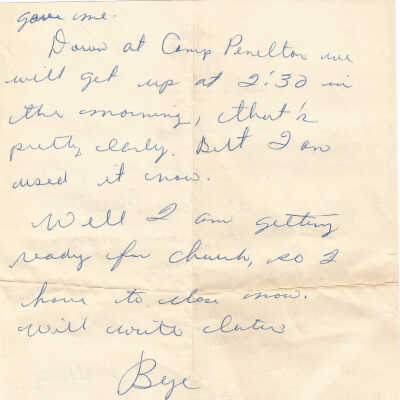 gave me.
Down at Camp Penelton we
will get up at 2:30 in
the morning, that's
pretty early. But I am
used it now.
Well I am getting
ready for church, so I
have to close now.
Will write later
Bye